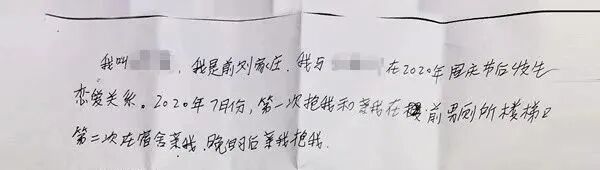 我叫 ，我是前刘家庄．我与 在2020年国庆节后发生
恋爱关系。2020年7月份，第一次抱我和亲我在 前男厕所楼梯口
第二次在宿舍亲我．晚自习后亲我抱我.